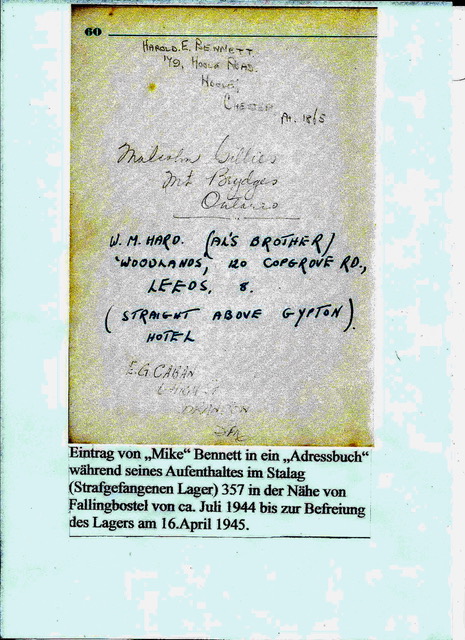 60
HAROLD. E. BENNETT.
79, HOOLE ROAD.
HOOLE,
CHESTER
Malcolm Gillies
Mt Brydges
Ontario
W. M. HARD. (AL'S BROTHER)
'WOODLANDS', 120 COPGROVE RD.,
LEEDS, 8.
(STRAIGHT ABOVE GYPTON)
HOTEL
E.G. CABAN
Eintrag von „Mike“ Bennett in ein „Adressbuch“
während seines Aufenthaltes im Stalag
(Strafgefangenen Lager) 357 in der Nähe von
Fallingbostel von ca. Juli 1944 bis zur Befreiung
des Lagers am 16.April 1945.